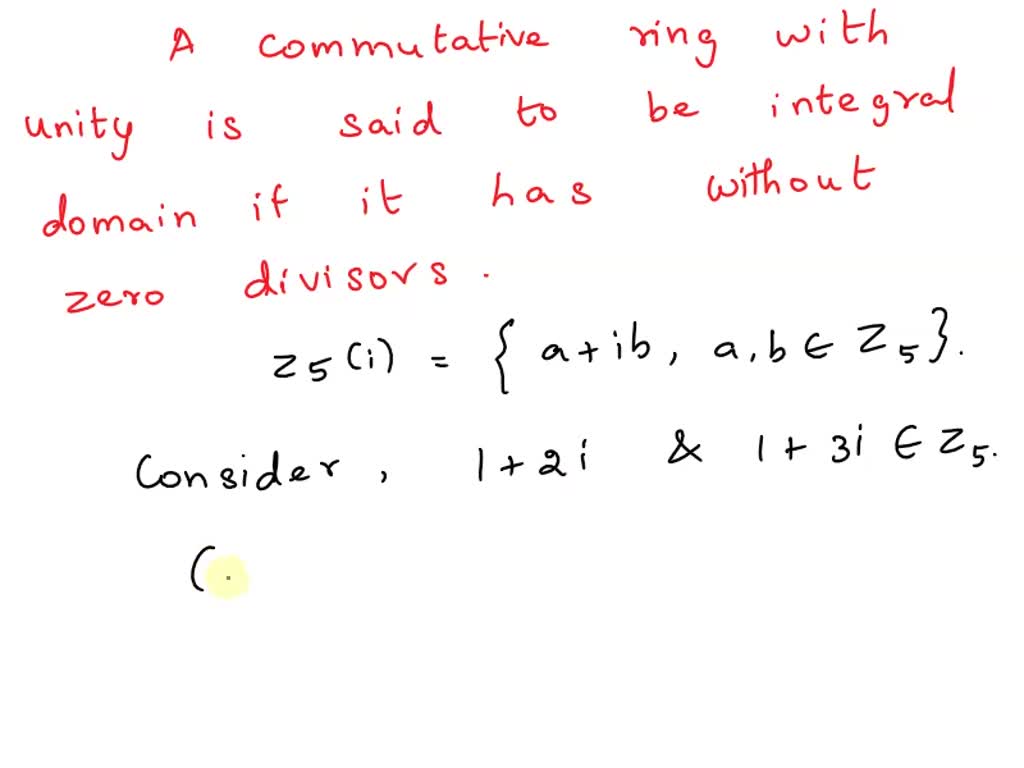 A commutative ring with
unity is said to be integral
domain if it has without
zero divisors.
Z5(i) = { a+ib, a,b ∈ Z5}.
Consider, 1+2i & 1+3i ∈ Z5.
(